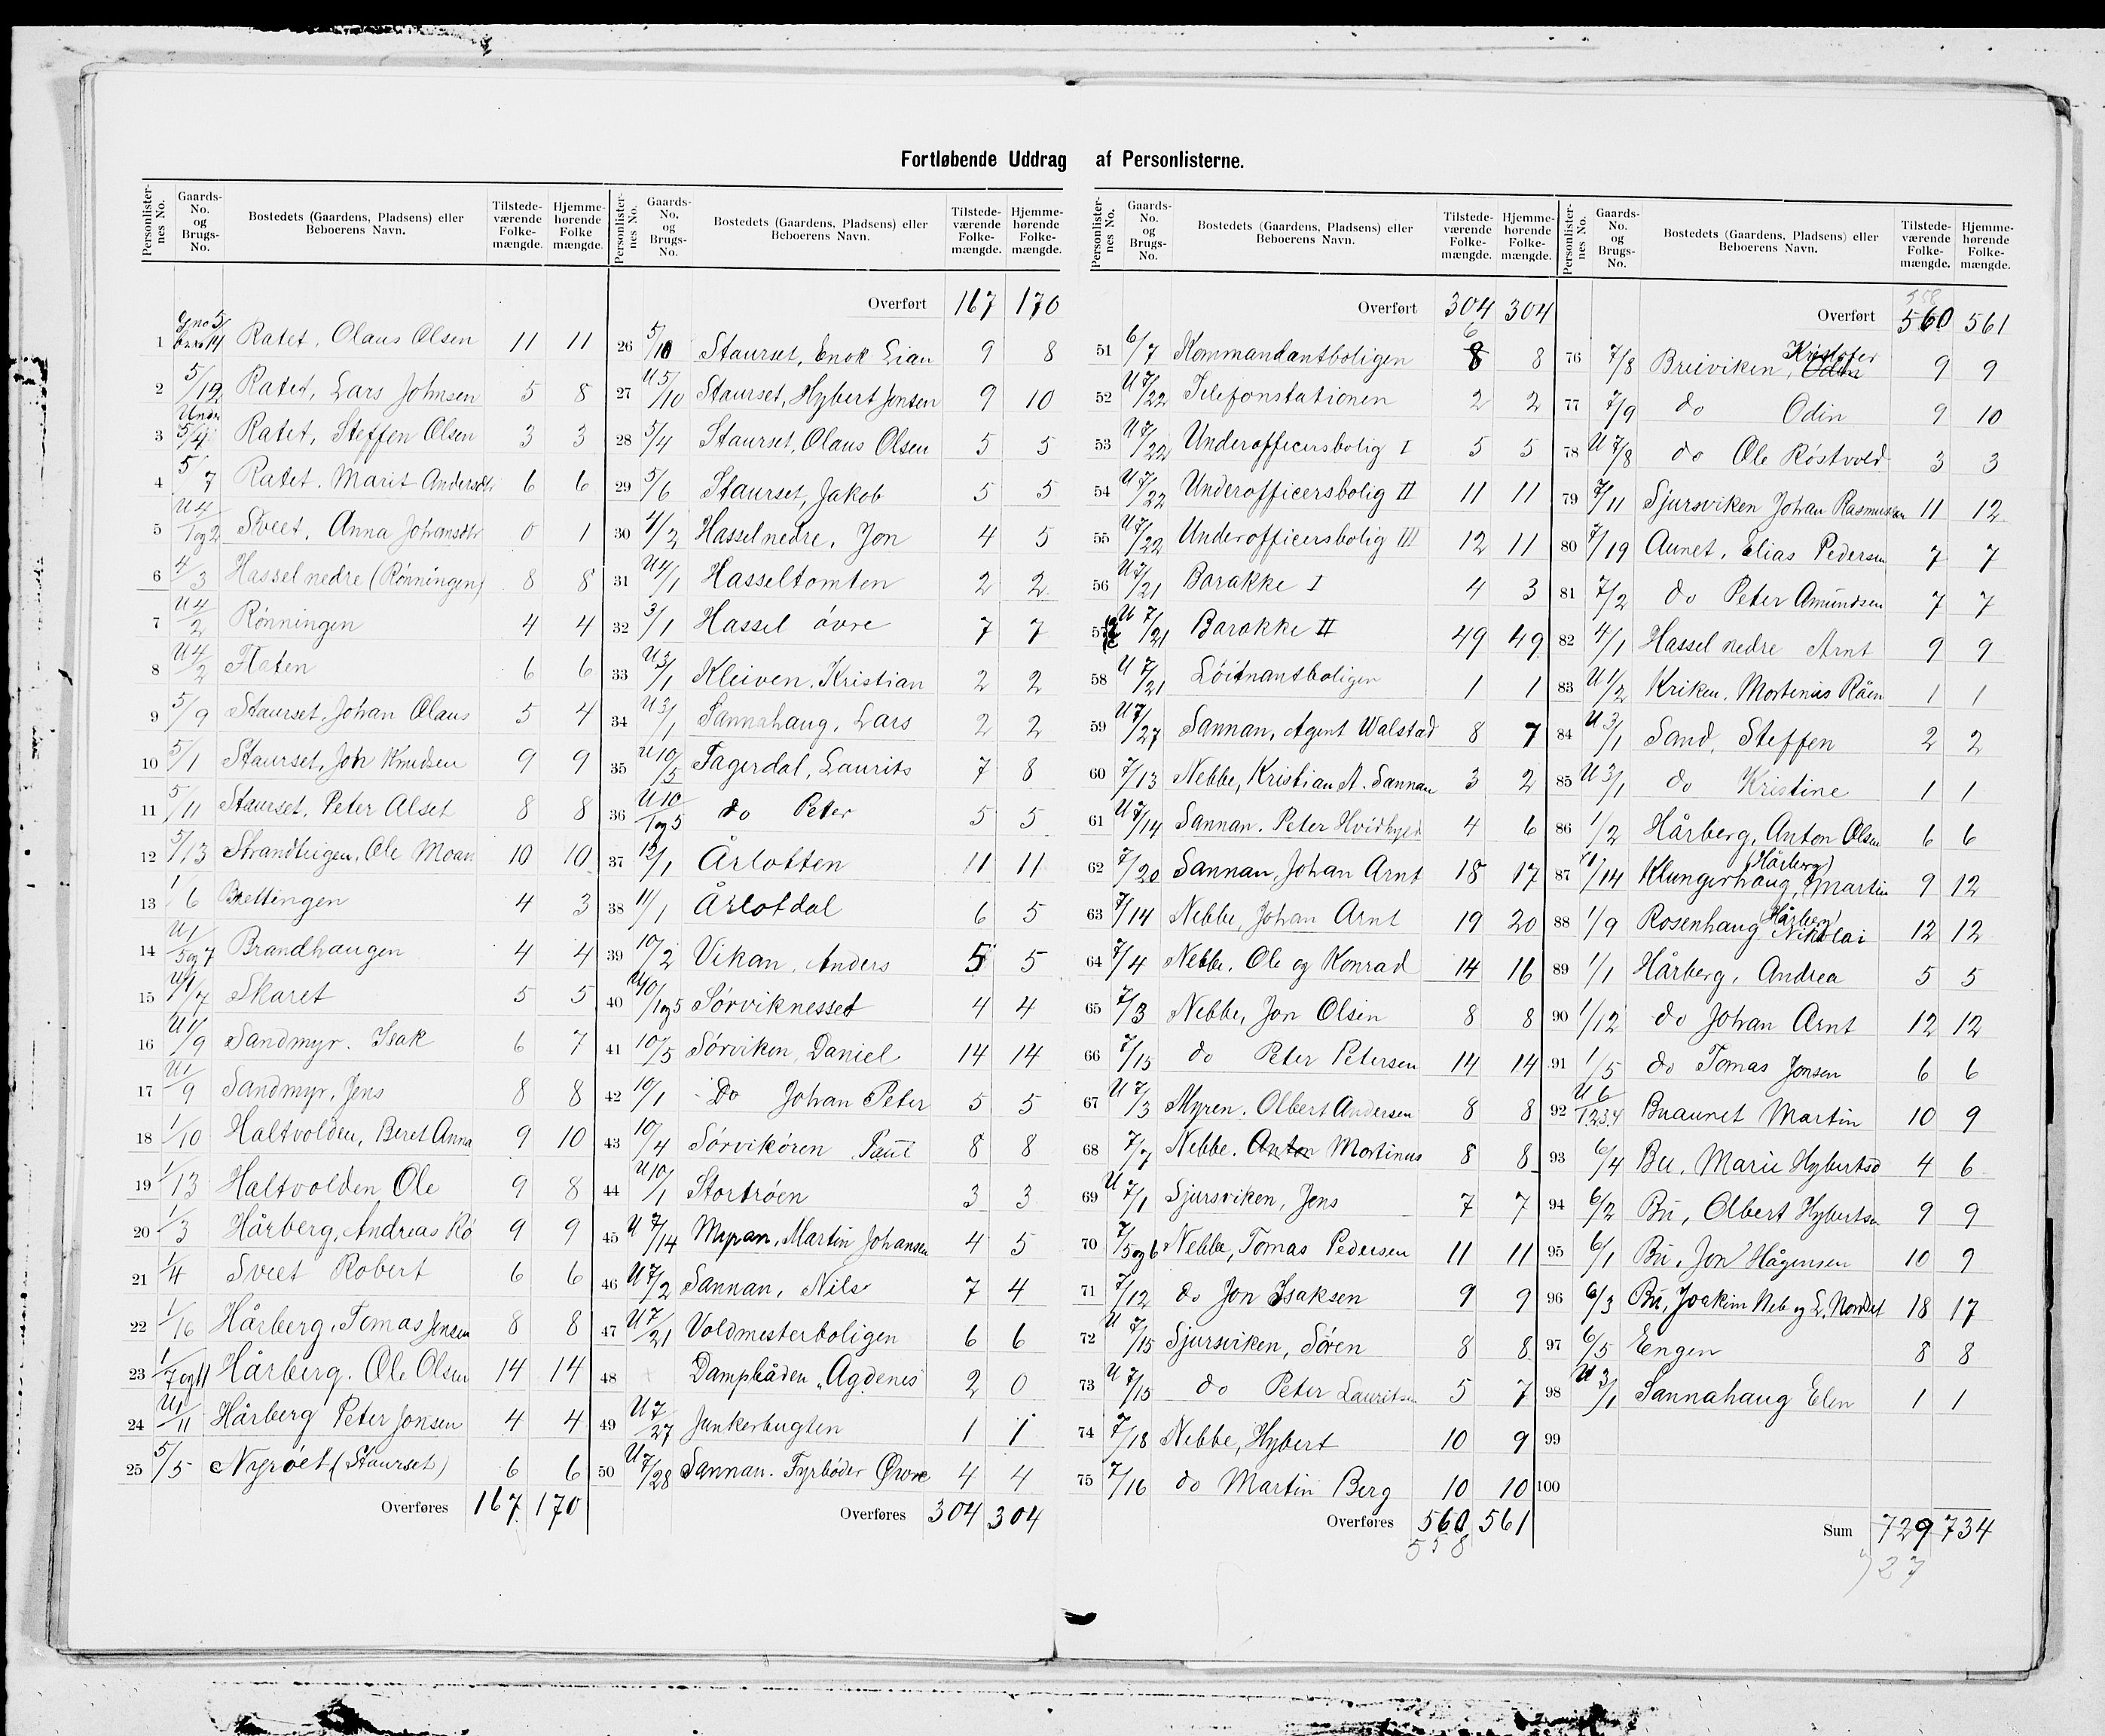 Fortløbende Uddrag af Personlisterne.
Personlisternes No. Gaards-No. og Brugs-No. Bostedets (Gaardens, Pladsens) eller Beboerens Navn. Tilstedeværende Folkemængde. Hjemmehørende Folkemængde.
1 Gno 5/ Bno 14 Ratet, Olaus Olsen 11 11
2 5/12 Ratet, Lars Johnsen 5 8
3 Under 5/4 Ratet, Steffen Olsen 3 3
4 5/7 Ratet. Marit Andersdtr 6 6
5 U 4/1og2 Sveet, Anna Johansdtr 0 1
6 4/3 Hassel nedre (Rønningen) 8 8
7 U 4/2 Rønningen 4 4
8 U 4/2 Flaten 6 6
9 5/9 Staurset, Johan Olaus 5 4
10 5/1 Staurset, Joh Knudsen 9 9
11 5/11 Staurset, Peter Alset 8 8
12 5/13 Strandteigen, Ole Moan 10 10
13 1/6 Brettingen 4 3
14 U 1/5og7 Brandhaugen 4 4
15 U 1/7 Skaret 5 5
16 U 1/9 Sandmyr. Isak 6 7
17 U 1/9 Sandmyr, Jens 8 8
18 1/10 Haltvolden, Beret Anna 9 10
19 1/13 Haltvolden Ole 9 8
20 1/3 Hårberg, Andreas Rø 9 9
21 1/4 Sveet Robert 6 6
22 1/16 Hårberg, Tomas Jensen 8 8
23 1/7og11 Hårberg. Ole Olsen 14 14
24 U 1/11 Hårberg Peter Jonsen 4 4
25 5/5 Nyrøet (Staurset) 6 6
Overføres 167 170
Personlisternes No. Gaards-No. og Brugs-No. Bostedets (Gaardens, Pladsens) eller Beboerens Navn. Tilstedeværende Folkemængde. Hjemmehørende Folkemængde.
Overført 167 170
26 5/10 Staurset, Enok Lian 9 8
27 U 5/10 Staurset, Hybert Jensen 9 10
28 5/4 Staurset, Olaus Olsen 5 5
29 5/6 Staurset, Jakob 5 5
30 4/2 Hassel nedre, Jon 4 5
31 U 4/1 Hasseltomten 2 2
32 3/1 Hassel øvre 7 7
33 U 3/1 Kleiven, Kristian 2 2
34 U 3/1 Sannahaug, Lars 2 2
35 U 10/5 Fagerdal, Laurits 7 8
36 U 10/1og5 do Peter 5 5
37 12/1 Årlotten 11 11
38 11/1 Årlotdal 6 5
39 10/2 Vikan, Anders 5 5
40 U 10/1og5 Sørviknesset 4 4
41 10/5 Sørviken, Daniel 14 14
42 10/1 Do Johan Peter 5 5
43 10/4 Sørvikøren Paul 8 8
44 U 10/1 Stortrøen 3 3
45 U 7/14 Myran, Martin Johansen 4 5
46 U 7/2 Sannan, Nils 7 4
47 U 7/21 Voldmesterboligen 6 6
48 Dampbåden "Agdenes" 2 0
49 U 7/27 Junkerbugten 1 1
50 U 7/28 Sannan. Fyrbøder Owre 4 4
Overføres 304 304
Personlisternes No. Gaards-No. og Brugs-No. Bostedets (Gaardens, Pladsens) eller Beboerens Navn. Tilstedeværende Folkemængde. Hjemmehørende Folkemængde.
Overført 304 304
51 6/7 Kommandantboligen 6 8 8
52 U 7/22 Telefonstationen 2 2
53 U 7/22 Underofficersbolig I 5 5
54 U 7/22 Underofficersbolig II 11 11
55 U 7/22 Underofficersbolig III 12 11
56 U 7/21 Barakke I 4 3
57 U 7/21 Barakke II 49 49
58 U 7/21 Løitnantboligen 1 1
59 U 7/27 Sannan, Agent Walstad 8 7
60 7/13 Nebbe, Kristian A. Sannan 3 2
61 U 7/14 Sannan. Peter Hvidkyld 4 6
62 7/20 Sannan, Johan Arnt 18 17
63 7/14 Nebbe, Johan Arnt 19 20
64 7/4 Nebbe. Ole og Konrad 14 16
65 7/3 Nebbe, Jon Olsen 8 8
66 7/15 do Peter Petersen 14 14
67 U 7/3 Myren. Olbert Andersen 8 8
68 7/7 Nebbe. Anton Mortinus 8 8
69 U 7/1 Sjursviken, Jens 7 7
70 7/5og6 Nebbe, Tomas Pedersen 11 11
71 7/12 do Jon Isaksen 9 9
72 U 7/15 Sjursviken, Søren 8 8
73 U 7/15 do Peter Lauritsen 5 7
74 7/18 Nebbe, Hybert 10 9
75 7/16 do Martin Berg 10 10
Overføres 560 561
558
Personlisternes No. Gaards-No. og Brugs-No. Bostedets (Gaardens, Pladsens) eller Beboerens Navn. Tilstedeværende Folkemængde. Hjemmehørende Folkemængde.
558
Overført 560 561
76 7/8 Breiviken, Odin Kristofer 9 9
77 7/9 do Odin 9 10
78 U 7/8 do Ole Røstvold 3 3
79 7/11 Sjursviken Johan Rasmussen 11 12
80 7/19 Aunet, Elias Pedersen 7 7
81 7/2 do Peter Amundsen 7 7
82 4/1 Hassel nedre Arnt 9 9
83 U 1/2 Kriken. Mortenius Råen 1 1
84 U 3/1 Sand, Steffen 2 2
85 U 3/1 do Kristine 1 1
86 1/2 Hårberg, Anton Olsen 6 6
87 1/14 Klungerhaug, (Hårberg) Martin 9 12
88 1/9 Rosenhaug (Hårberg) Nikolai 12 12
89 1/1 Hårberg, Andrea 5 5
90 1/12 do Johan Arnt 12 12
91 1/5 do Tomas Jonsen 6 6
92 U 6/1.2.3.4 Buaunet Martin 10 9
93 6/4 Bu. Marie Hybertsd 4 6
94 6/2 Bu, Olbert Hybertsen 9 9
95 6/1 Bu, Jon Hågensen 10 9
96 6/3 Bu, Joakim Neb og L. Nordset 18 17
97 6/5 Engen 8 8
98 U 3/1 Sannahaug Elen 1 1
99
100
Sum 729 734
727